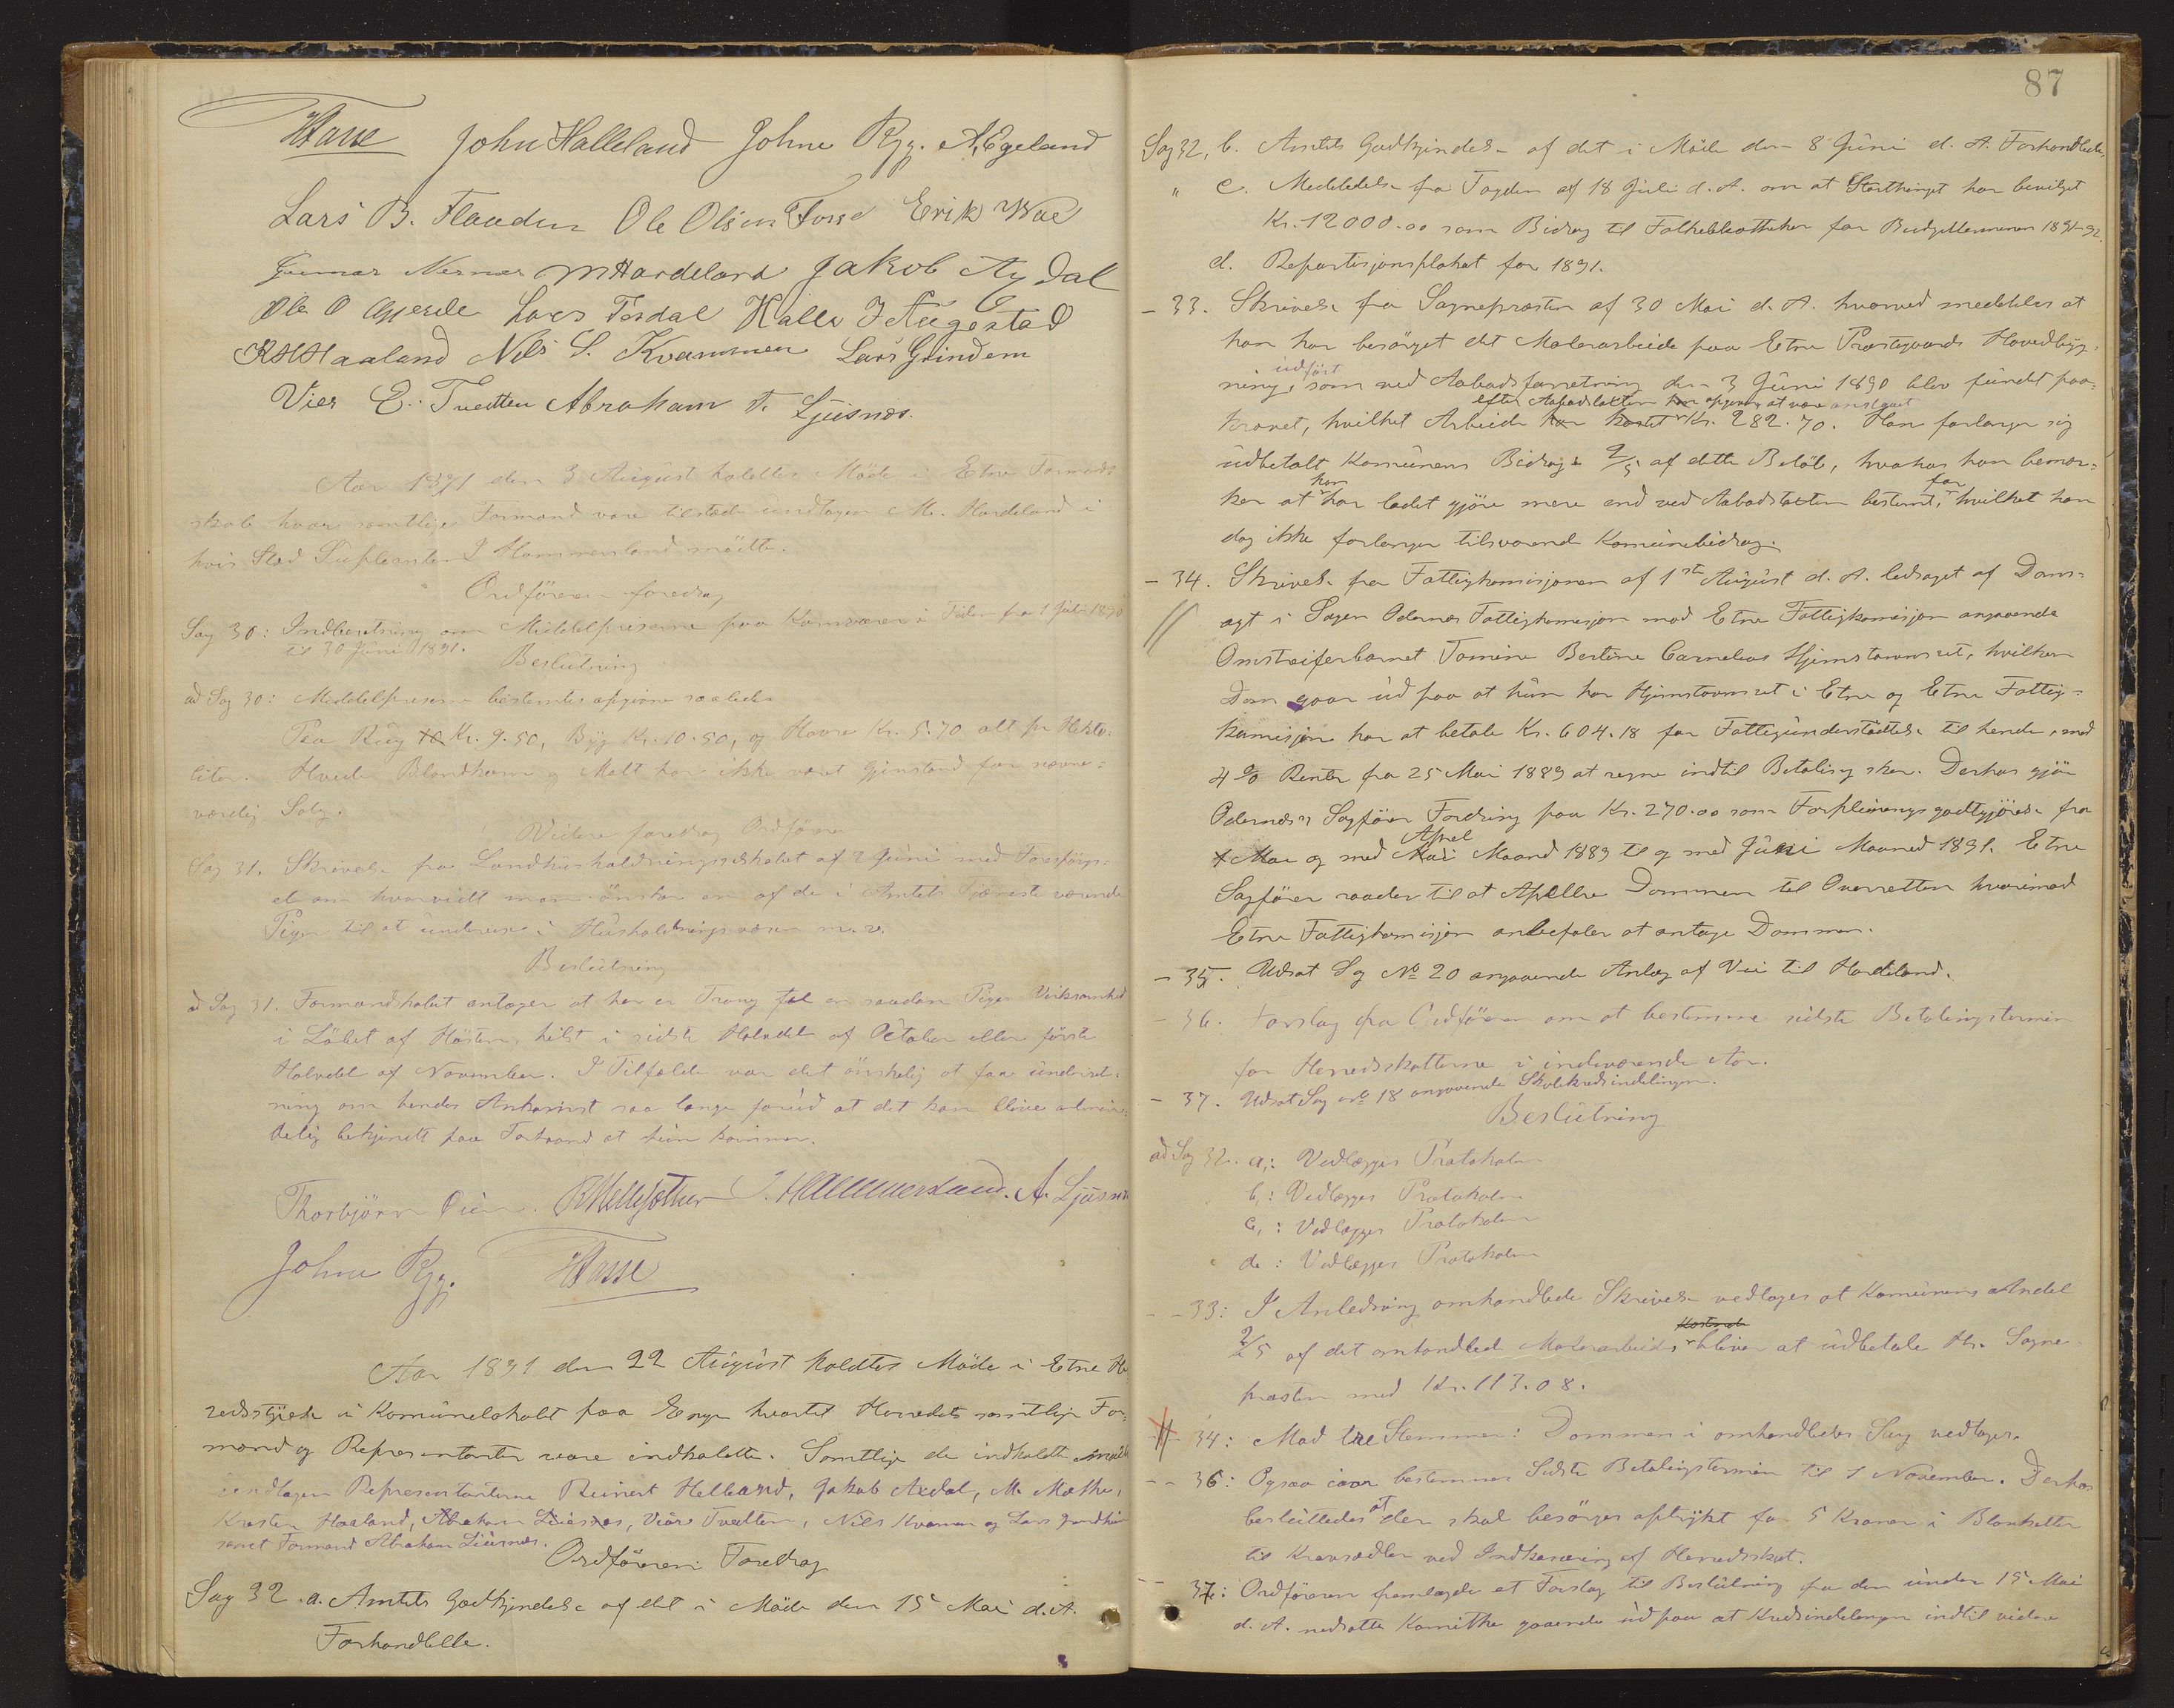 HFasse John Halleland Johne Ryg. A. Egeland
Lars B. Flaaden Ole Olsen Fosse Erik Wae
Gunnar Nernæs MHardeland Jakob Axdal
Ole O Gjerde Lars Tesdal Halle J Augestad
KHHaaland Nils S. Kvammen Lars Grindem
Vier E. Tvedten Abraham T. Ljusnæs.
Aar 1891 den 3 August holdtes Möde i Etne Formand-
skab hvor samtlige Formænd vare tilstede undtagen M. Hardeland i
hvis Sted Supleanten I Hammersland mödte.
Ordföreren foredrog
Sag 30: Indberetning om Middelpriserne paa Kornvarer i Tiden fra 1 Juli 1890
til 30 Juni 1891.
Beslutning
ad Sag 30: Middelpriserne bestemtes opgivne saaledes
Paa Rug Kr. 9.50, Byg Kr. 10.50, og Havre Kr. 5.70 alt pr Hekto-
liter. Hvede Blandkorn og Malt har ikke været Gjenstand for nævne-
værdig Salg.
Videre foredrog Ordföreren
Sag 31. Skrivelse fra Landhusholdningsselskabet af 2 Juni med Forespörgs-
el om hvorvidt man önsker en af de i Amtets Tjeneste værende
Piger til at undervise i Husholdningsvæsen m. v.
Beslutning
ad Sag 31. Formandskabet antager at her er Trang til en saadan Piges Virksomhed
i Löbet af Hösten, helst i sidste Halvdel af Oktober eller förste
Halvdel af November. I Tilfælde var det önskelig at faa underret-
ning om hendes Ankomst saa længe forud at det kan blive almin-
delig bekjendt paa Forhaand at hun kommer.
Thorbjörn Öien. RMellesæther I. Hammersland. A. Ljusnæs
Johne Ryg. HFasse
Aar 1891 den 22 August holdtes Möde i Etne He-
redsstyrelse i Komunelokalet paa Enge hvortil Herredets samtlige For-
mænd og Repræsentanter vare indkaldte. Samtlige de indkaldte mödte
undtagen Repræsentanterne Reinert Helland, Jakob Axdal, M. Mæthe,
Kristen Haaland, Abraham Liusnæs, Viær Tvedten, Nils Kvamen og Lars Grindheim
samt Formand Abraham Liusnæs.
Ordföreren Foredrog
Sag 32. a. Amtets Godkjendelse af det i Möde den 15 Mai d. A.
Forhandlede.
87
Sag 32, b. Amtets Godkjendelse af det i Möde den 8 Juni d. A. Forhandlede,
" c. Meddelelse fra Fogden af 18 Juli d. A. om at Storthinget har bevilget
Kr. 12000.00 som Bidrag til Folkebibliotheker for Budgetterminen 1891-92.
d. Repartisjonsplakat for 1891.
- 33. Skrivelse fra Sognepræsten af 30 Mai d. A. hvorved meddeles at
han har besörget det Malerarbeide paa Etne Præstegaards Hovedbyg-
udført
ning, som ved Aabodsforretning den 3 Juni 1890 blev fundet paa-
efter Aabodstakten opgives at være anslaaet
krævet, hvilket Arbeide har kostet Kr. 282.70. Han forlanger sig
udbetalt Komunens Bidrag 2/5 af dette Belöb, hvorhos han bemær-
han for
ker at har ladet gjöre mere end ved Aabodstakten bestemt, hvilket han
dog ikke forlanger tilsvarende Komunebidrag.
- 34. Skrivelse fra Fattigkomisjonen af 1ste August d. A. ledsaget af Doms-
agt i Sagen Odernæs Fattigkomisjon mod Etne Fattigkomisjon angaaende
Omstreiferbarnet Tomine Bertine Cornelias Hjemstavnsret, hvilken
Dom gaar ud paa at hun har Hjemstavnsret i Etne og Etne Fattig-
komisjon har at betale Kr. 604.18 for Fattigunderstöttelse til hende, med
4% Renter fra 25 Mai 1889 at regne indtil Betaling sker. Derhos gjör
Odernæs's Sagförer Fordring paa Kr. 270.00 som Forpleiningsgodtgjörelse fra
April
1 Mai og med Mai Maaned 1889 til og med Juni Maaned 1891. Etne
Sagförer raader til at Apellere Dommen til Overretten hvorimod
Etne Fattigkomisjon anbefaler at antage Dommen.
- 35. Udsat Sag No 20 angaaende Anlæg af Vei til Hardeland.
- 36. Forslag fra Ordföreren om at bestemme sidste Betalingstermin
for Herredsskatterne i indeværende Aar.
- 37. Udsat Sag no 18 angaaende Skolekredsindelingen.
Beslutning
ad Sag 32. a,: Vedlægges Protokolen
b,: Vedlægges Protokolen
c,: Vedlægges Protokolen
d. : Vedlægges Protokolen
- - 33: I Anledning omhandlede Skrivelse vedtages at Komunens Andel
Kostende
2/5 af det omhandlede Malerarbeides bliver at udbetale Hr. Sogne-
præsten med Kr. 113.08.
- 34: Mod tre Stemmer: Dommen i omhandledes Sag vedtages.
- - 36: Ogsaa iaar bestemmes Sidste Betalingstermin til 1 November. Derhos
besluttedes at der skal besörges optrykt for 5 Kroner i Blanketter
til Kravsedler ved Indkassering af Herredsskat.
- - 37: Ordföreren fremlagde et Forslag til Beslutning fra den under 15 Mai
d. A. nedsatte Komithe gaaende ud paa at Kredsindelingen indtil videre